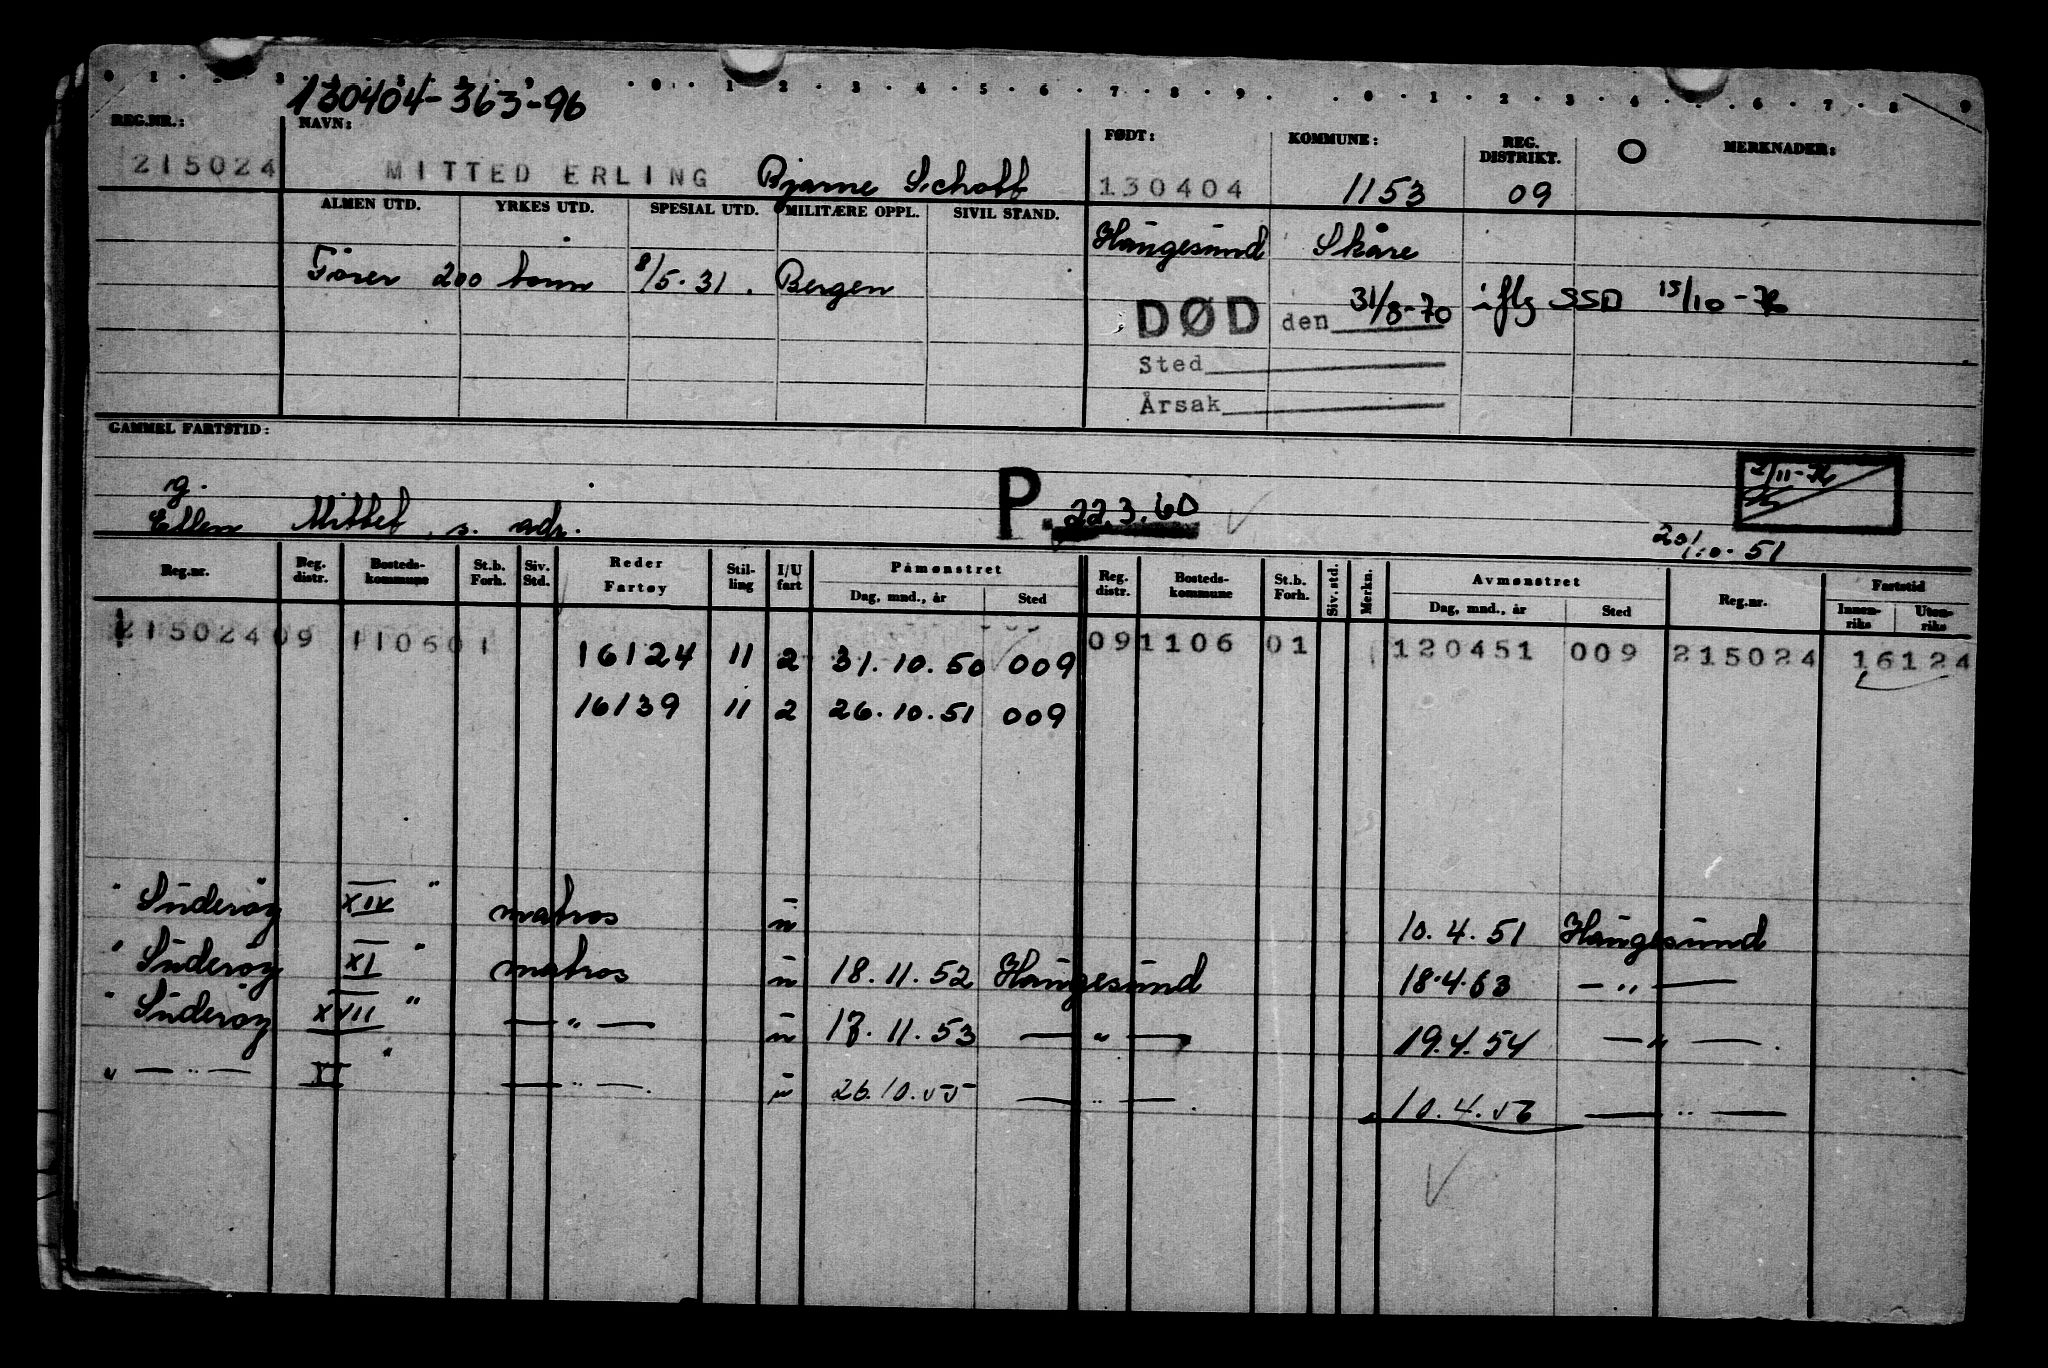 0 1 . . 3 . . 5 . 8 . 9 . 0 . 1 . 2 . 3 . 4 . 5 . 6 . 7 . 8 . 9 . . 0 . 1 . 2 . 3 . 4 . . 6 . 7 . 8 . 9
130404-363-96
REG.NR.: NAVN: FØDT: KOMMUNE: REG. DISTRIKT. O MERKNADER:
215024 MITTED ERLING Bjarne Schott 130404 1153 09
ALMEN UTD. YRKES UTD. SPESIAL UTD. MILITÆRE OPPL. SIVIL STAND. Haugesund Skåre
Fører 200 tonn 8/5.31. Bergen
DØD den 31/8-70 iflg SSD 15/10-72
Sted
Årsak
GAMMEL FARTSTID:
g. P. 22.3.60
Ellen Mittet, s. adr.
20/10-51
Reg.nr. Reg. distr. Bosteds-kommune St.b. Forh. Siv. Std. Reder Fartøy Stil-ling I/U fart Påmønstret Dag, mnd., år Sted Reg. distr. Bosteds-kommune St.b. Forh. Siv. std. Merkn. Avmønstret Dag, mnd., år Sted Reg.nr. Fartstid Innen-riks Uten-riks
215024 09 1106 01 16124 11 2 31.10.50 009 09 1106 01 120451 009 215024 16124
16139 11 2 26.10.51 009
" Süderøy XIV " matros u 10.4.51 Haugesund
" Süderøy XI " matros u 18.11.52 Haugesund 18.4.53 — " —
" Süderøy XVII " — " — u 17.11.53 — " — 19.4.54 — " — .
" — " — XI " — " — . u 26.10.55 — " — . 10.4.56 — " —